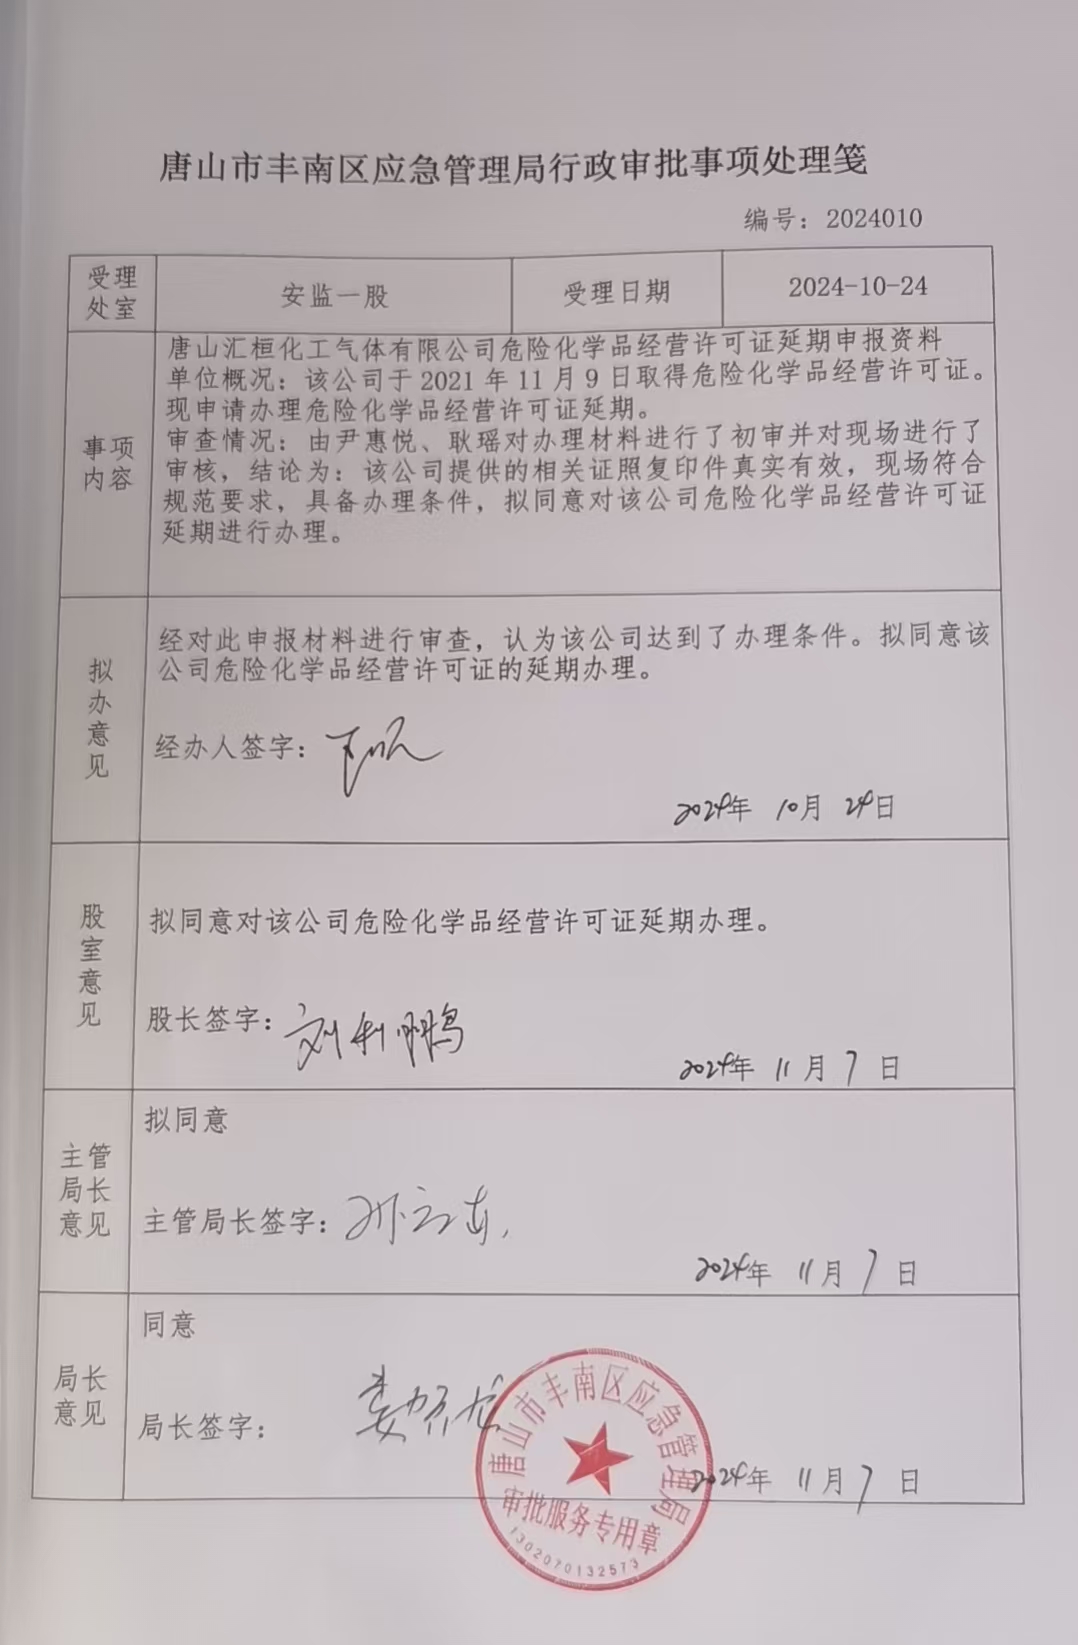 唐山市丰南区应急管理局行政审批事项处理笺
编号：2024010
受理处室
安监一股
受理日期
2024-10-24
事项内容
唐山汇桓化工气体有限公司危险化学品经营许可证延期申报资料
单位概况：该公司于 2021 年 11 月 9 日取得危险化学品经营许可证。
现申请办理危险化学品经营许可证延期。
审查情况：由尹惠悦、耿瑶对办理材料进行了初审并对现场进行了
审核，结论为：该公司提供的相关证照复印件真实有效，现场符合
规范要求，具备办理条件，拟同意对该公司危险化学品经营许可证
延期进行办理。
拟办意见
经对此申报材料进行审查，认为该公司达到了办理条件。拟同意该
公司危险化学品经营许可证的延期办理。
经办人签字：
2024年 10月 24日
股室意见
拟同意对该公司危险化学品经营许可证延期办理。
股长签字：刘利鹏
2024年 11月 7日
主管局长意见
拟同意
主管局长签字：
2024年 11月 7日
局长意见
同意
局长签字：
2024年 11月 7日
唐山市丰南区应急管理局
审批服务专用章
1302070132573